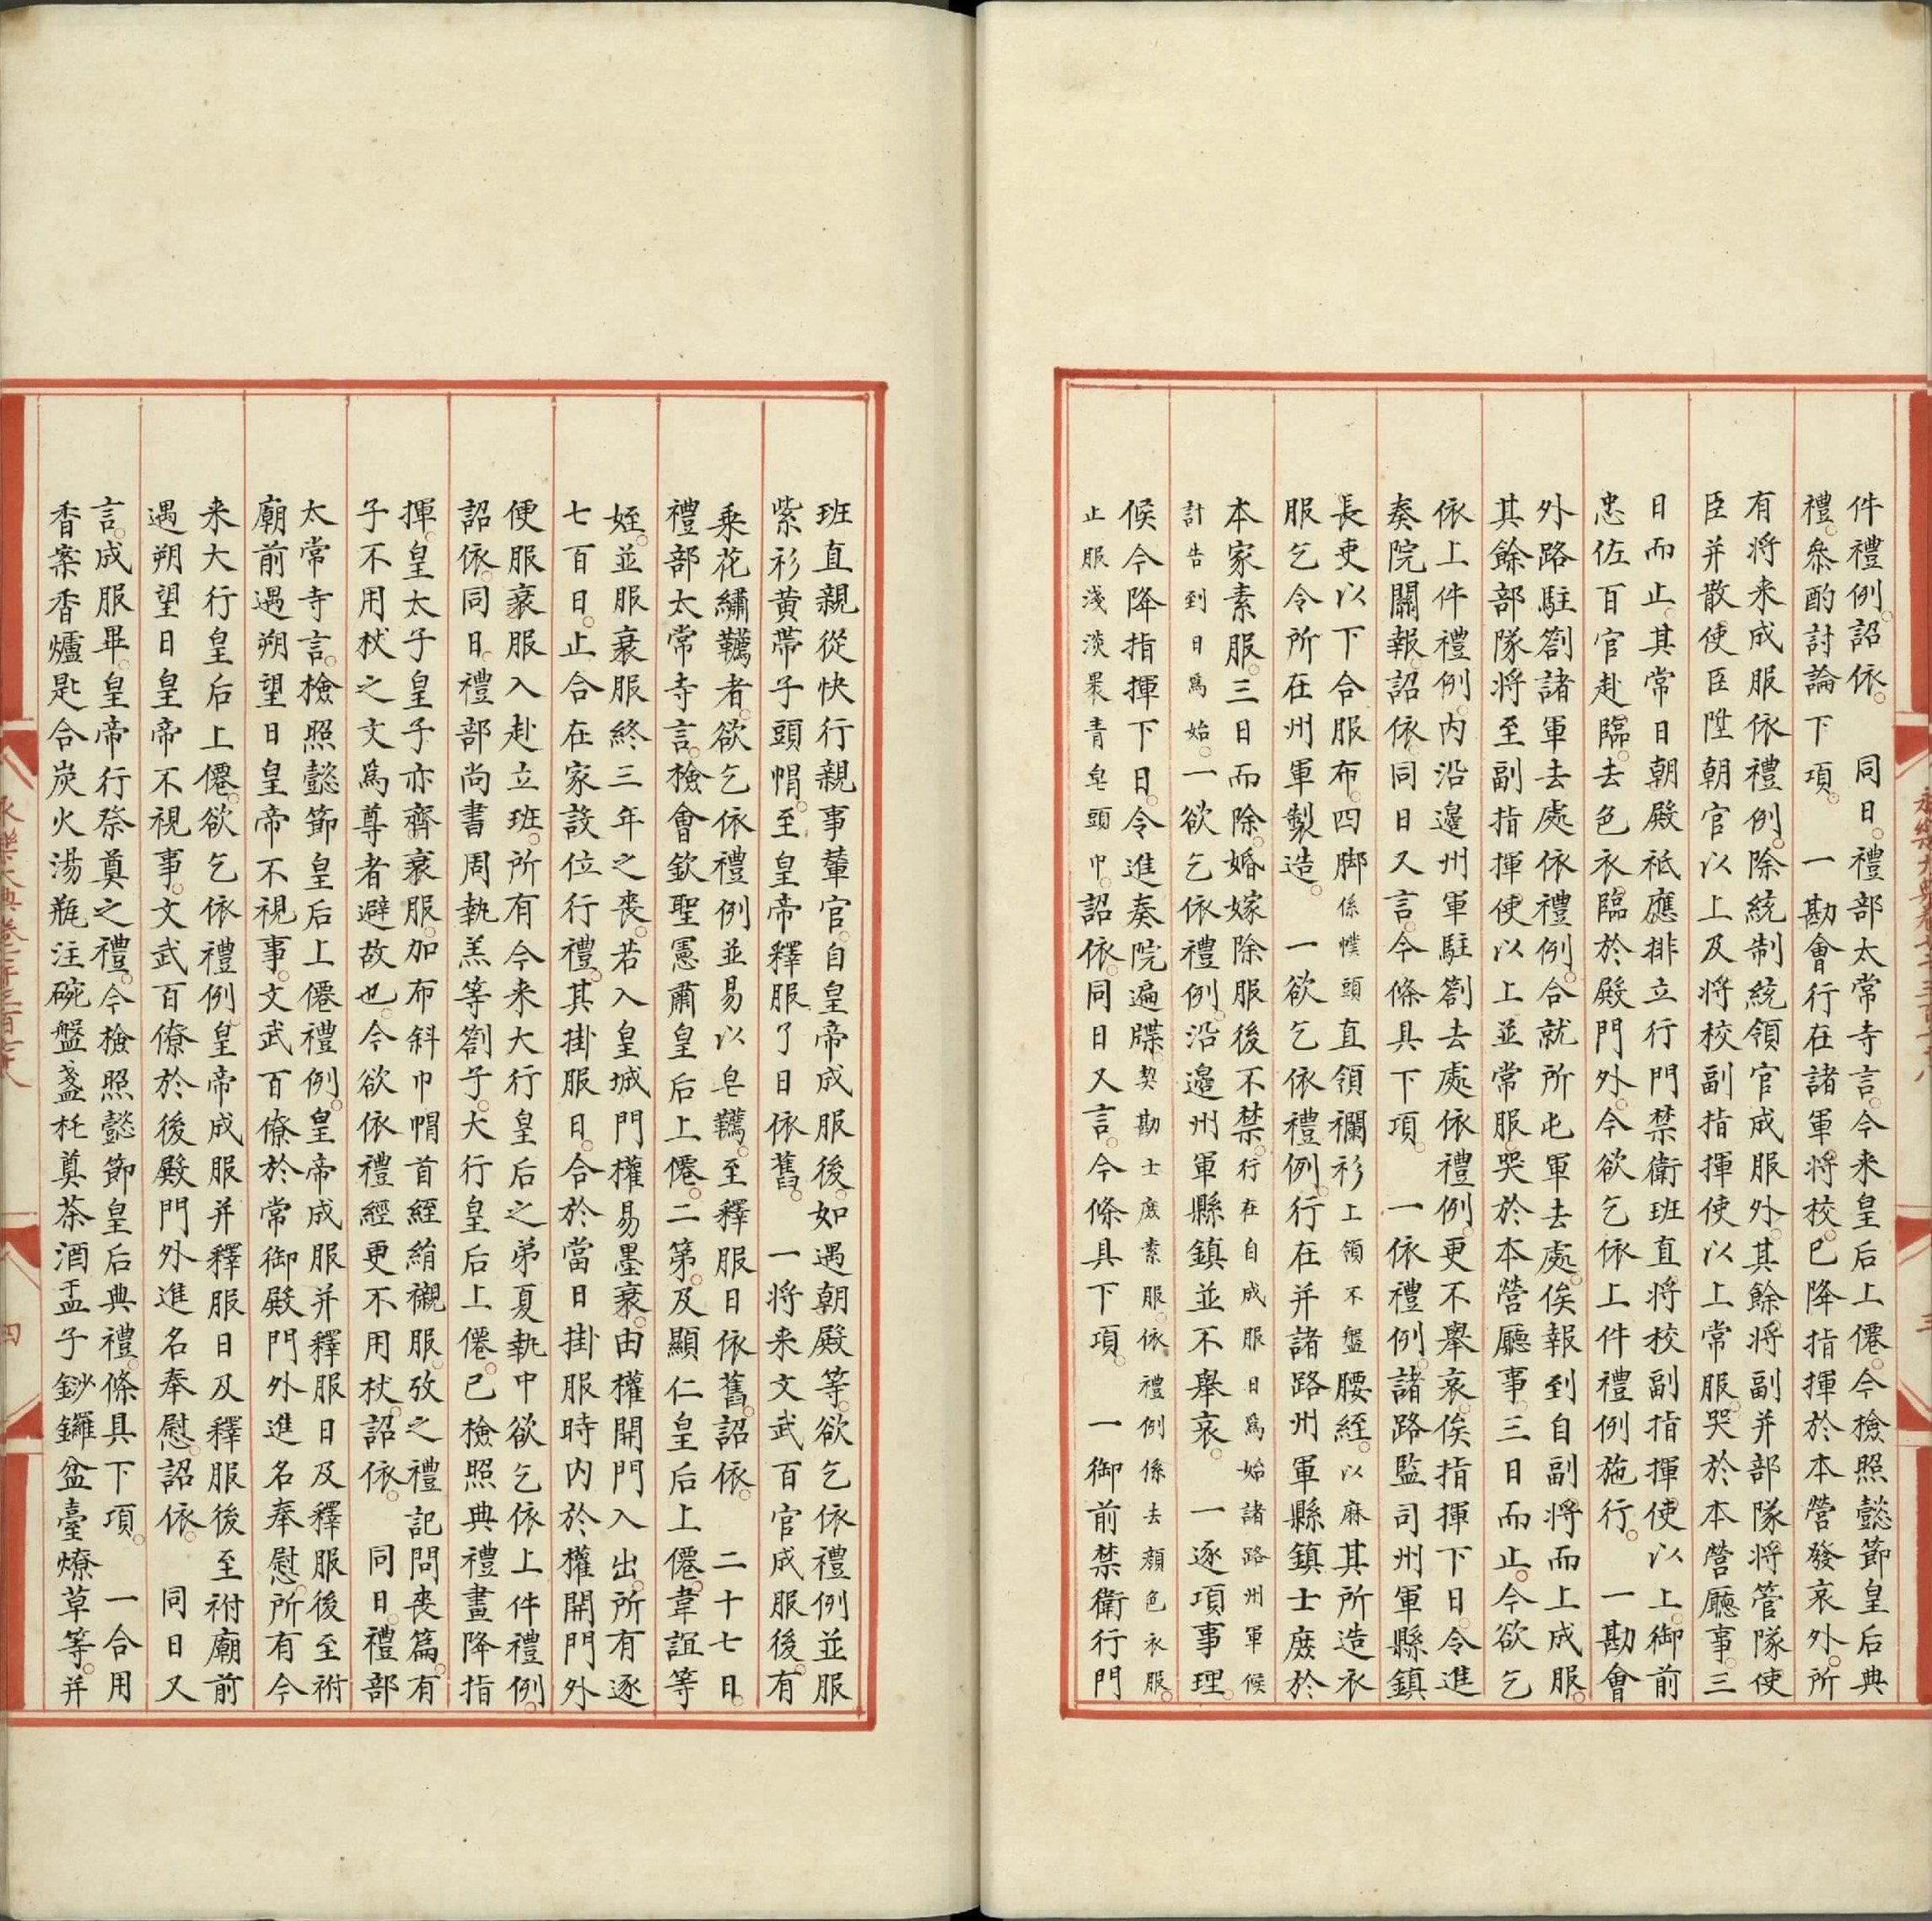 件禮例詔依 同日禮部太常寺言今来皇后上僊今檢照懿節皇后典
禮叅酌討論下項 一勘會行在諸軍將校已降指揮於本營發哀外所
有將来成服依禮例除統制統領官成服外其餘將副并部隊將管隊使
臣并散使臣陞朝官以上及將校副指揮使以上常服哭於本營廳事三
日而止其常日朝殿祗應排立行門禁衛班直將校副指揮使以上御前
忠佐百官赴臨去色衣臨於殿門外今欲乞依上件禮例施行 一勘會
外路駐劄諸軍去處依禮例合就所屯軍去處俟報到自副將而上成服
其餘部隊將至副指揮使以上並常服哭於本營廳事三日而止今欲乞
依上件禮例内沿邊州軍駐劄去處依禮例更不舉哀俟指揮下日令進
奏院關報詔依同日又言今條具下項 一依禮例諸路監司州軍縣鎮
長吏以下合服布四脚係幞頭直領襴衫上領不盤腰絰以麻其所造衣
服乞令所在州軍製造 一欲乞依禮例行在并諸路州軍縣鎮士庶於
本家素服三日而除婚嫁除服後不禁行在自成服日爲始諸路州軍候
計告到日爲始一欲乞依禮例沿邊州軍縣鎮並不舉哀 一逐項事理
候今降指揮下日令進奏院遍牒契勘士庶素服依禮例係去顏色衣服
止服淺淡黑青皂頭巾詔依同日又言今條具下項 一御前禁衛行門
班直親從快行親事輦官自皇帝成服後如遇朝殿等欲乞依禮例並服
紫衫黃帶子頭帽至皇帝釋服了日依舊 一將来文武百官成服後有
乘花繡韉者欲乞依禮例並易以皂韉至釋服日依舊詔依 二十七日
禮部太常寺言檢會欽聖憲肅皇后上僊二第及顯仁皇后上僊韋誼等
姪並服衰服終三年之喪若入皇城門權易墨衰由權開門入出所有逐
七百日止合在家設位行禮其掛服日合於當日掛服時内於權開門外
便服衰服入赴立班所有今来大行皇后之弟夏執中欲乞依上件禮例
詔依同日禮部尚書周執羔等劄子大行皇后上僊已檢照典禮畫降指
揮皇太子皇子亦齊衰服加布斜巾帽首絰絹襯服攷之禮記問喪篇有
子不用杖之文爲尊者避故也今欲依禮經更不用杖詔依 同日禮部
太常寺言檢照懿節皇后上僊禮例皇帝成服并釋服日及釋服後至祔
廟前遇朔望日皇帝不視事文武百僚於常御殿門外進名奉慰所有今
来大行皇后上僊欲乞依禮例皇帝成服并釋服日及釋服後至祔廟前
遇朔望日皇帝不視事文武百僚於後殿門外進名奉慰詔依 同日又
言成服畢皇帝行祭奠之禮今檢照懿節皇后典禮條具下項 一合用
香案香爐匙合炭火湯瓶注碗盤盞托奠茶酒盂子鈔鑼盆臺燎草等并